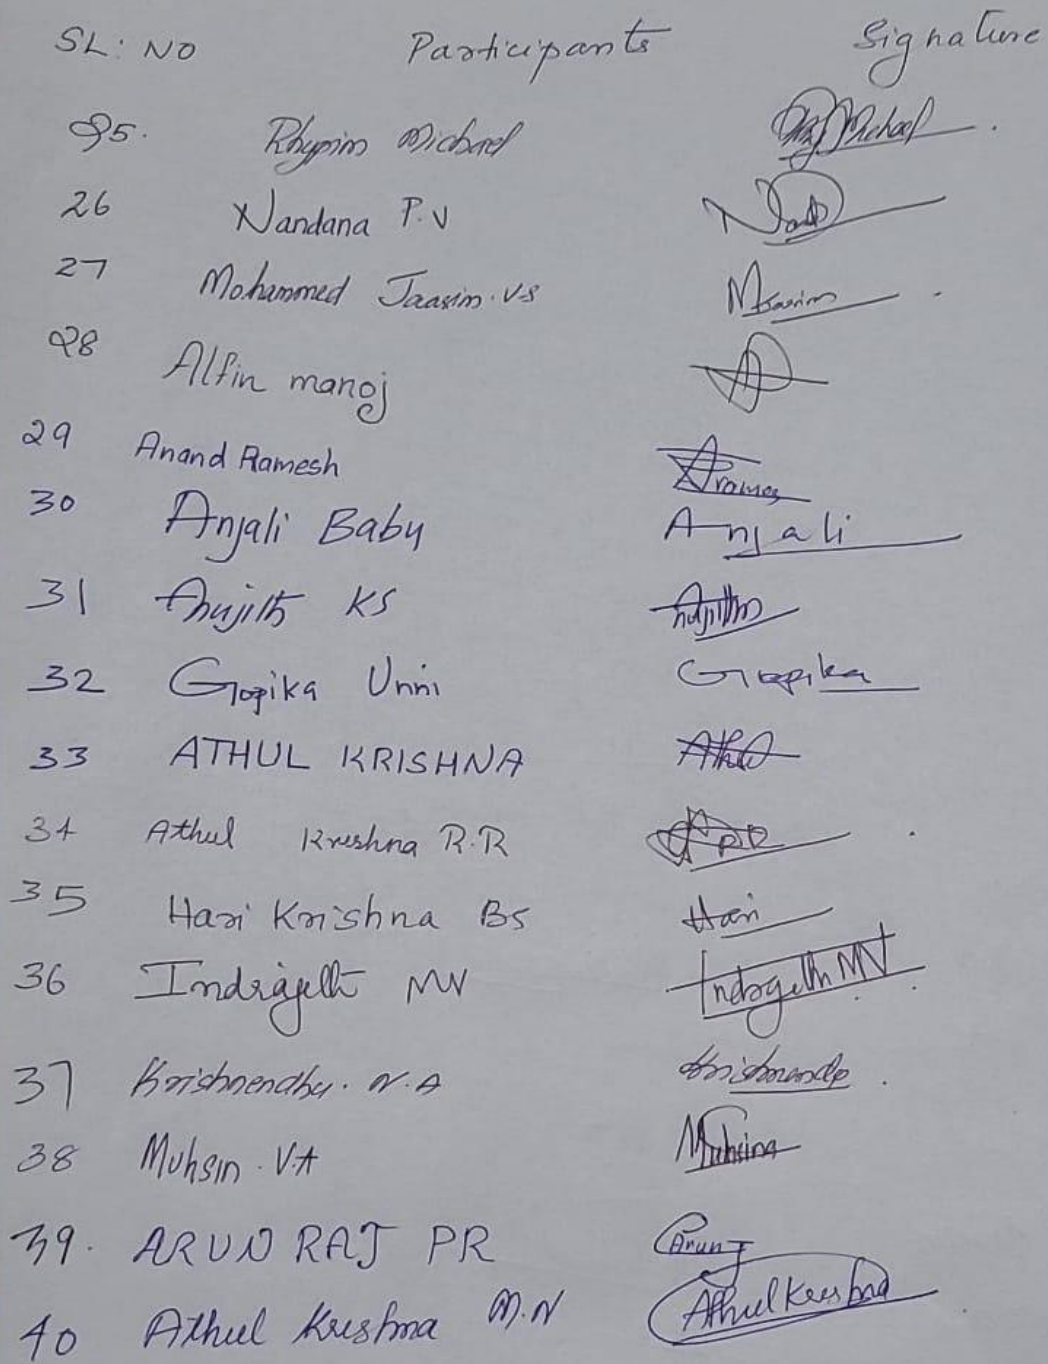 SL: NO Participants Signature
25. Rhypin Michael Michael
26 Nandana P.V Nand
27 Mohammed Jaasim. V.S MJaasim
28 Alfin manoj
29 Anand Ramesh Arames
30 Anjali Baby Anjali
31 Anujith KS Anujith
32 Gopika Unni Gopika
33 ATHUL KRISHNA Athul
34 Athul Krishna R.R
35 Hari Krishna BS Hari
36 Indrajith MV Indrajith MV
37 Krishnendhu. N.A
38 Muhsin. V.A Muhsina
39. ARUN RAJ PR Arun
40 Athul Krishna M.N Athul Krishna